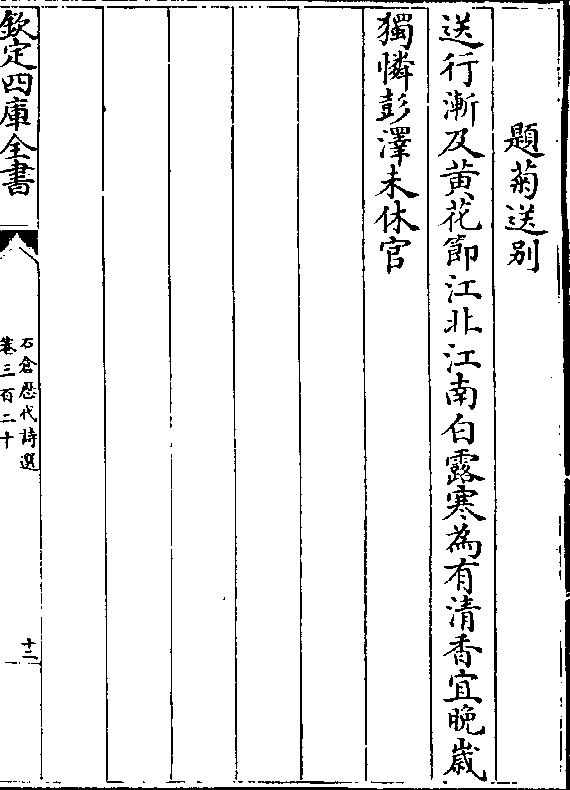 題菊送别
送行漸及黄花節江北江南白露寒為有清香宜晩歳
獨憐彭澤未休官
欽定四庫全書
石倉歴代詩選
卷三百二十
十二